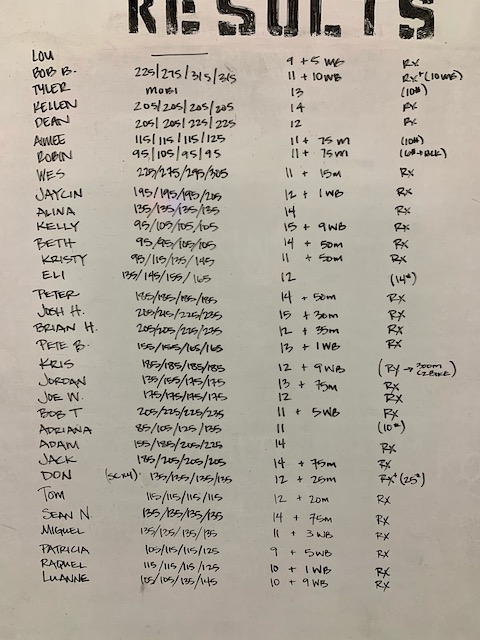 RESULTS
LOU 9 + 5 WB RX
BOB B. 225/275/315/315 11 + 10WB RX+ (10WB)
TYLER MOBI 13 (10#)
KELLEN 205/205/205/205 14 RX
DEAN 205/205/225/225 12 RX
AIMEE 115/115/115/125 11 + 75m (10#)
ROBIN 95/105/95/95 11 + 75m
WES 225/275/295/305 11 + 15m RX
JAYLIN 195/195/195/205 12 + 1WB RX
ALINA 135/135/135/135 14 RX
KELLY 95/105/105/105 15 + 9WB RX
BETH 95/95/105/105 14 + 50m RX
KRISTY 95/115/135/145 11 + 50m RX
ELI 135/145/155/165 12 (14#)
PETER 185/185/185/185 14 + 50m RX
JOSH H. 205/215/225/235 15 + 30m RX
BRIAN H. 205/205/225/235 12 + 35m RX
PETE B. 155/155/165/165 13 + 1WB RX
KRIS 185/185/185/185 12 + 9WB (RX → 300m
JORDAN 135/155/175/175 13 + 75m RX
JOE W. 175/175/175/175 12 RX
BOB T 205/225/225/275 11 + 5WB RX
ADRIANA 85/105/125/135 11 (10#)
ADAM 155/185/205/225 14 RX
JACK 185/205/205/205 14 + 75m RX
DON 135/135/135/135 12 + 25m RX+ (25#)
TOM 115/115/115/115 12 + 20m RX
SEAN N. 135/135/135/135 14 + 75m RX
MIGUEL 135/135/135/135 11 + 3WB RX
PATRICIA 105/115/115/125 9 + 5WB RX
RAQUEL 115/115/115/125 10 + 1WB RX
LUANNE 105/105/135/145 10 + 9WB RX